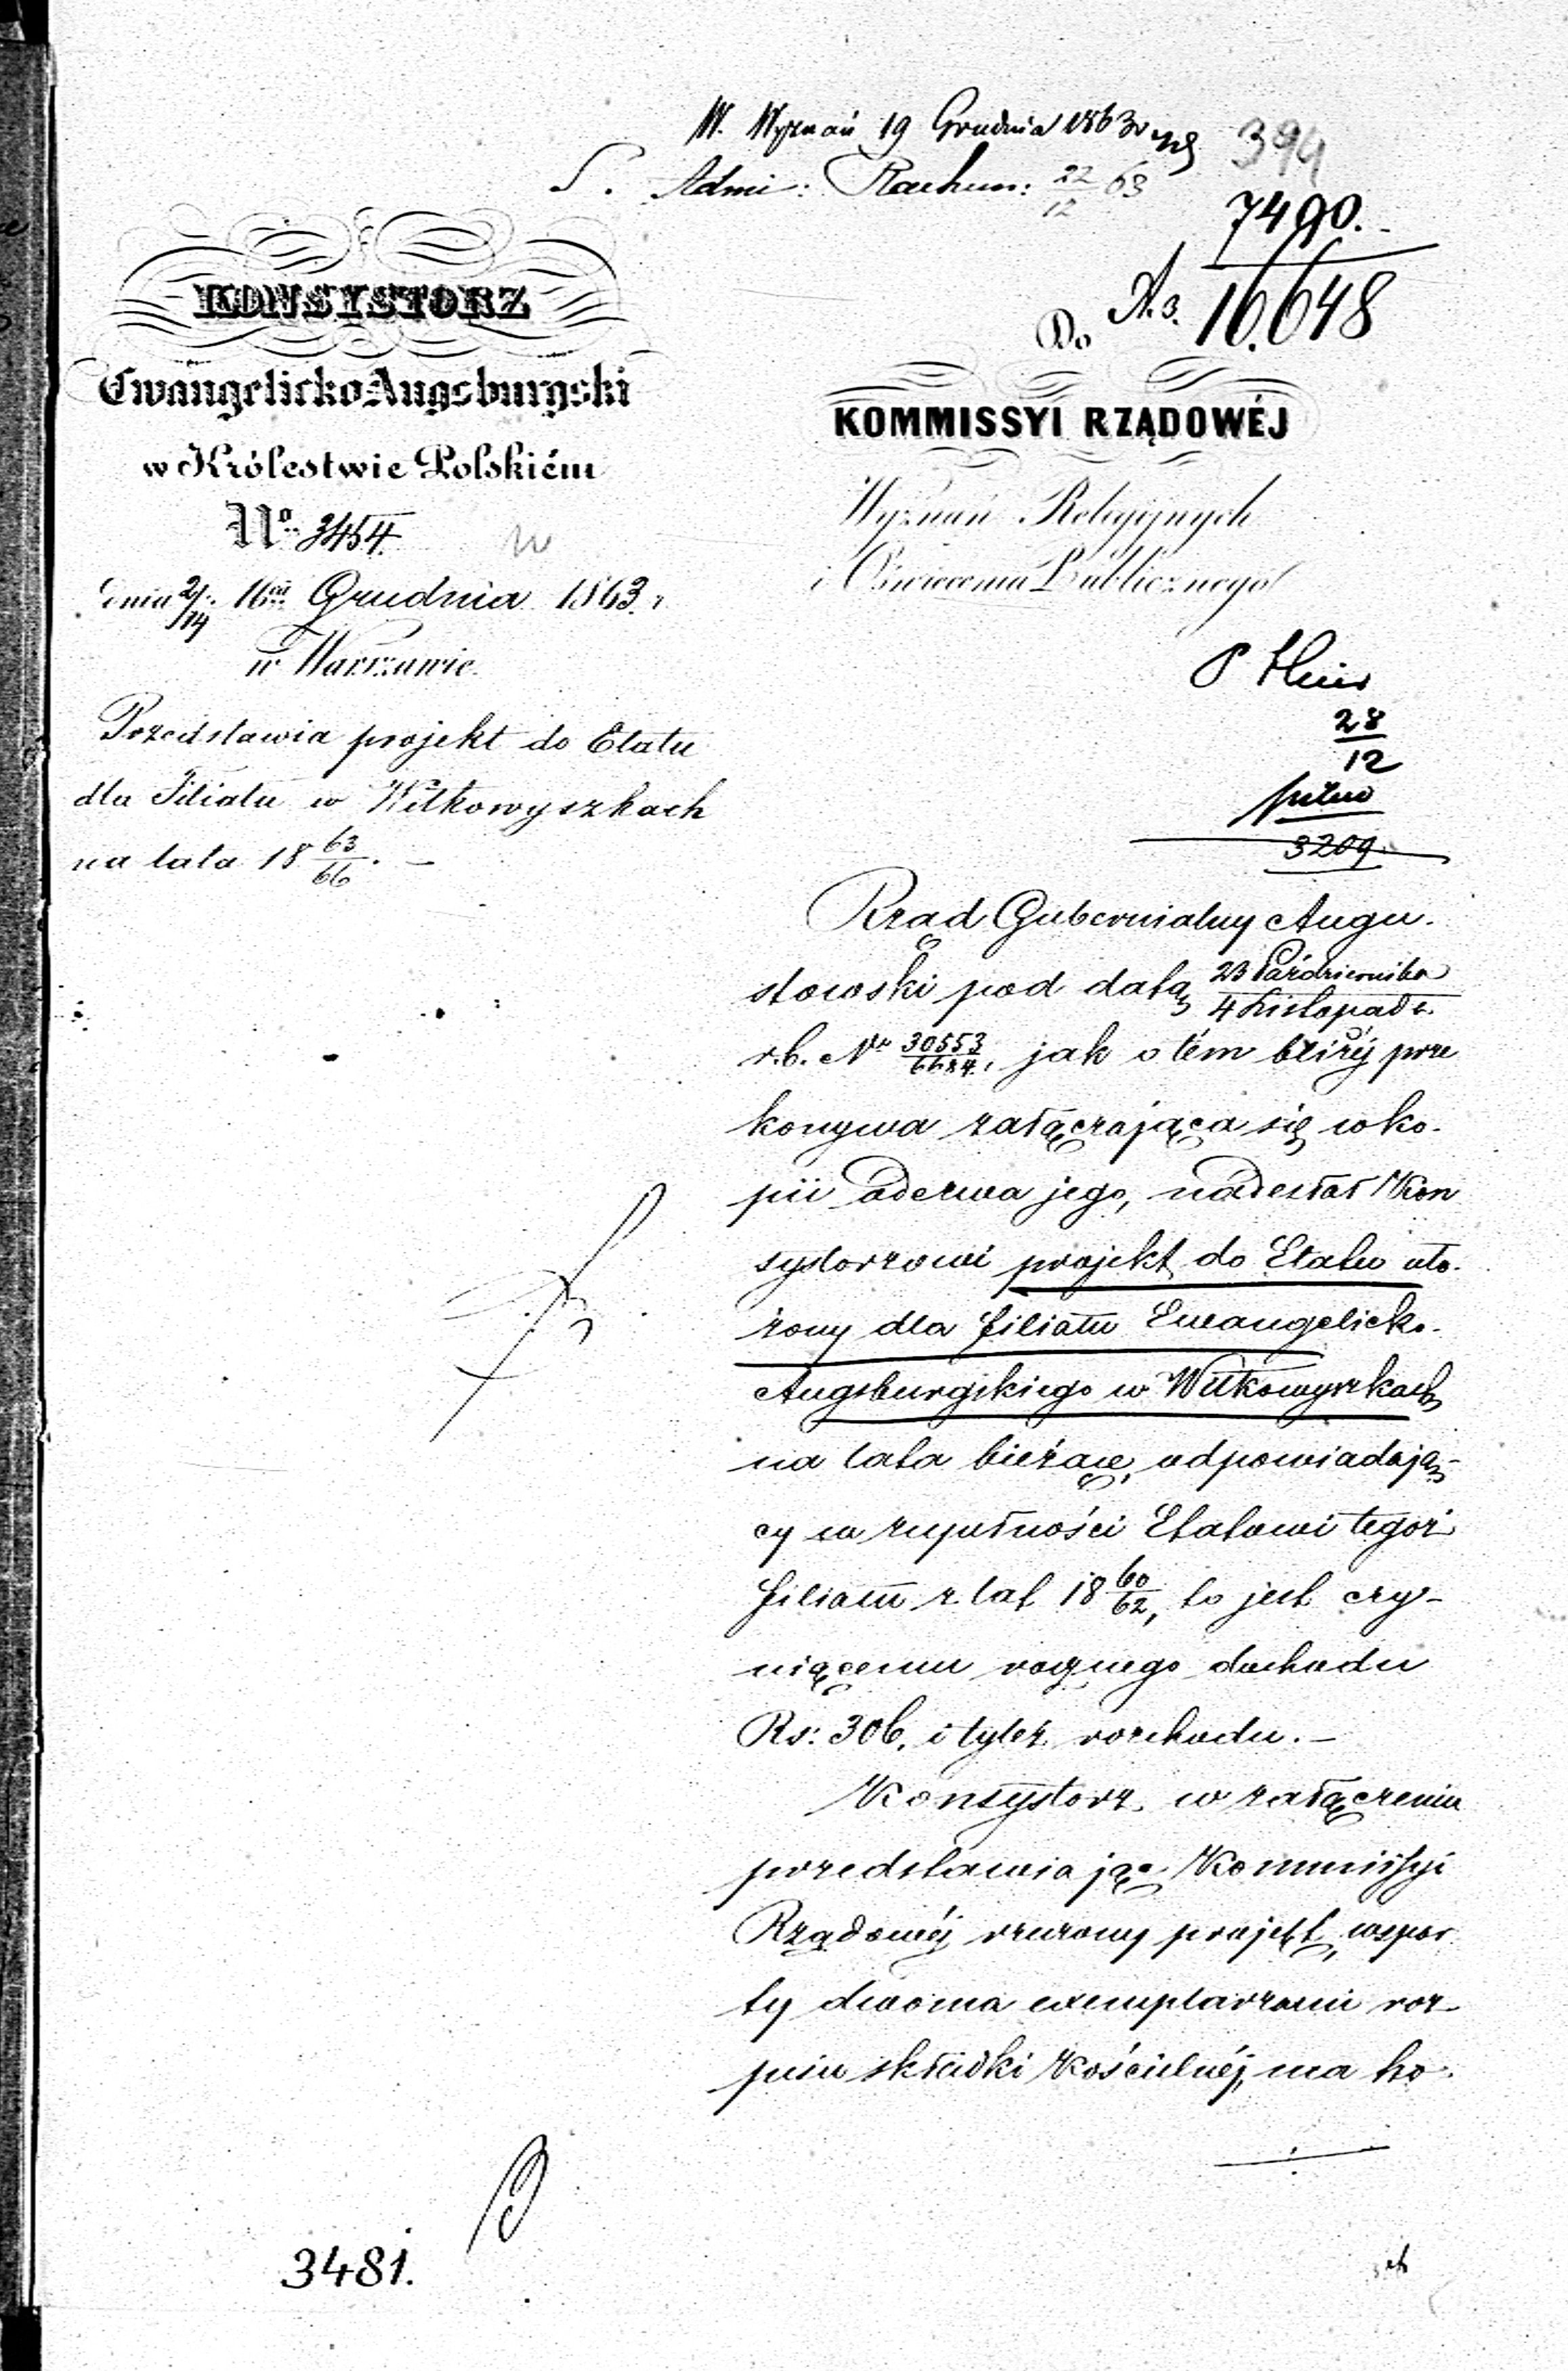 W. Wyznań 19 Grudnia 1863
394
S. Admi: Rachun: 22/12 63
7490.
A. 3. 16.648
KONSYSTORZ
Ewangelicko Augsburgski
w Królestwie Polskiém
No. 3454.
dnia 16go Grudnia 1863 r
w Warszawie.
Przedstawia projekt do Etatu
dla Filiału w Wiłkowyszkach
na lata 18 63/66. —
Do
KOMMISSYI RZĄDOWÉJ
Wyznań Religijnych
i Oświecenia Publicznego
28
12
pilno
3209.
Rząd Gubernialny Augu-
stowski pod datą 23 Października/4 Listopada
r.b. Nr 30553/6684, jak o tém bliżéj prze
konywa załączająca się w ko-
pii odezwa jego, nadesłał Kon
systorzowi projekt do Etatu uło-
żony dla filiału Ewangelicko-
Augsburgskiego w Wiłkowyszkach
na lata bieżące, odpowiadają-
cy w zupełności Etatowi tegoż
filiału z lat 18 60/62, to jest czy-
niącemu rocznego dochodu
Rs: 306, i tyleż rozchodu. —
Konsystorz w załączeniu
przedstawiając Kommissyi
Rządowéj rzeczony projekt, wspar
ty dwoma exemplarzami roz-
pisu składki Kościelnéj, ma ho-
3481.